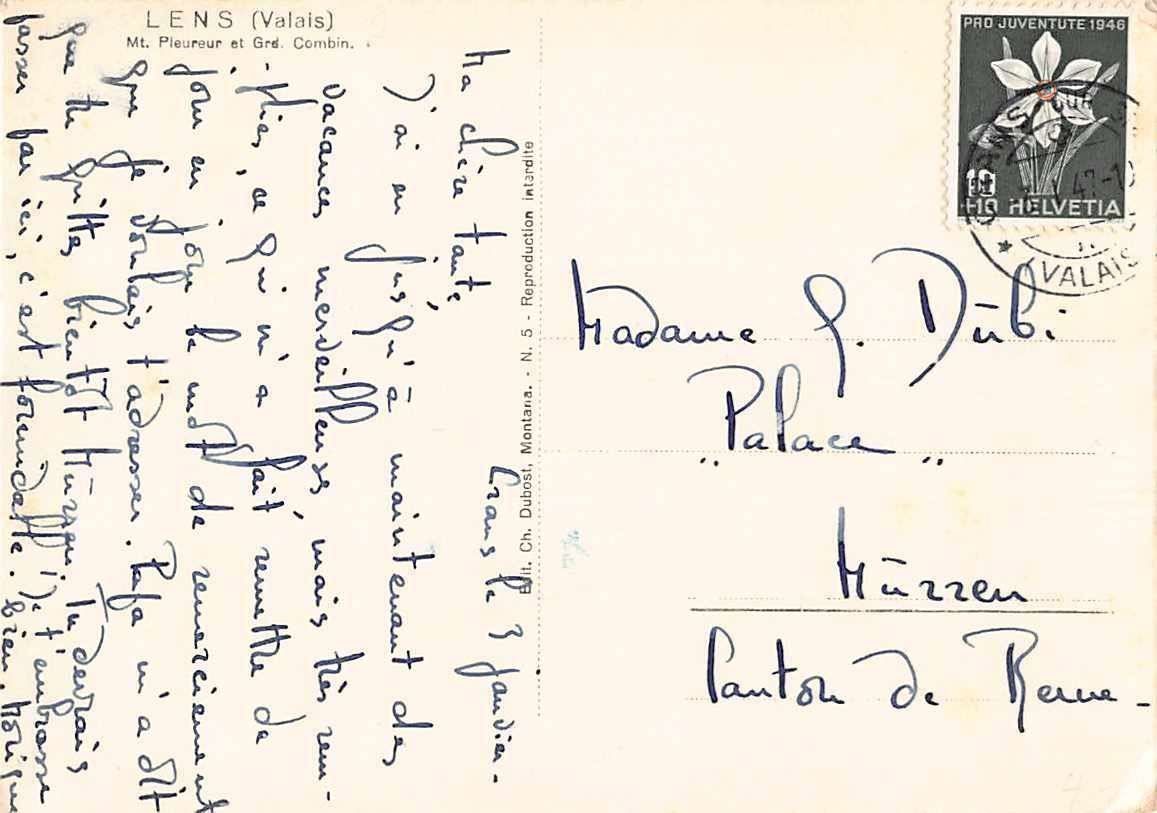 LENS (Valais)
Mt. Pleureur et Grd. Combin.
Crans le 3 janvier.
Ma chère tante,
J'ai eu jusqu'à maintenant des
vacances merveilleuses, mais très rem-
-plies, ce qui m'a fait remettre de
jour en jour le mot de remerciement
que je voulais t'adresser. Papa m'a dit
que tu quittes bientôt Mürren. Tu devrais
passer par ici, c'est formidable. Je t'embrasse
bien, Monique
Edit. Ch. Dubost, Montana. - N. 5 - Reproduction interdite
PRO JUVENTUTE 1946
10
+10 HELVETIA
CRANS SUR
47-1
(VALAIS
Madame G. Dübi
"Palace"
Mürren
Canton de Berne-